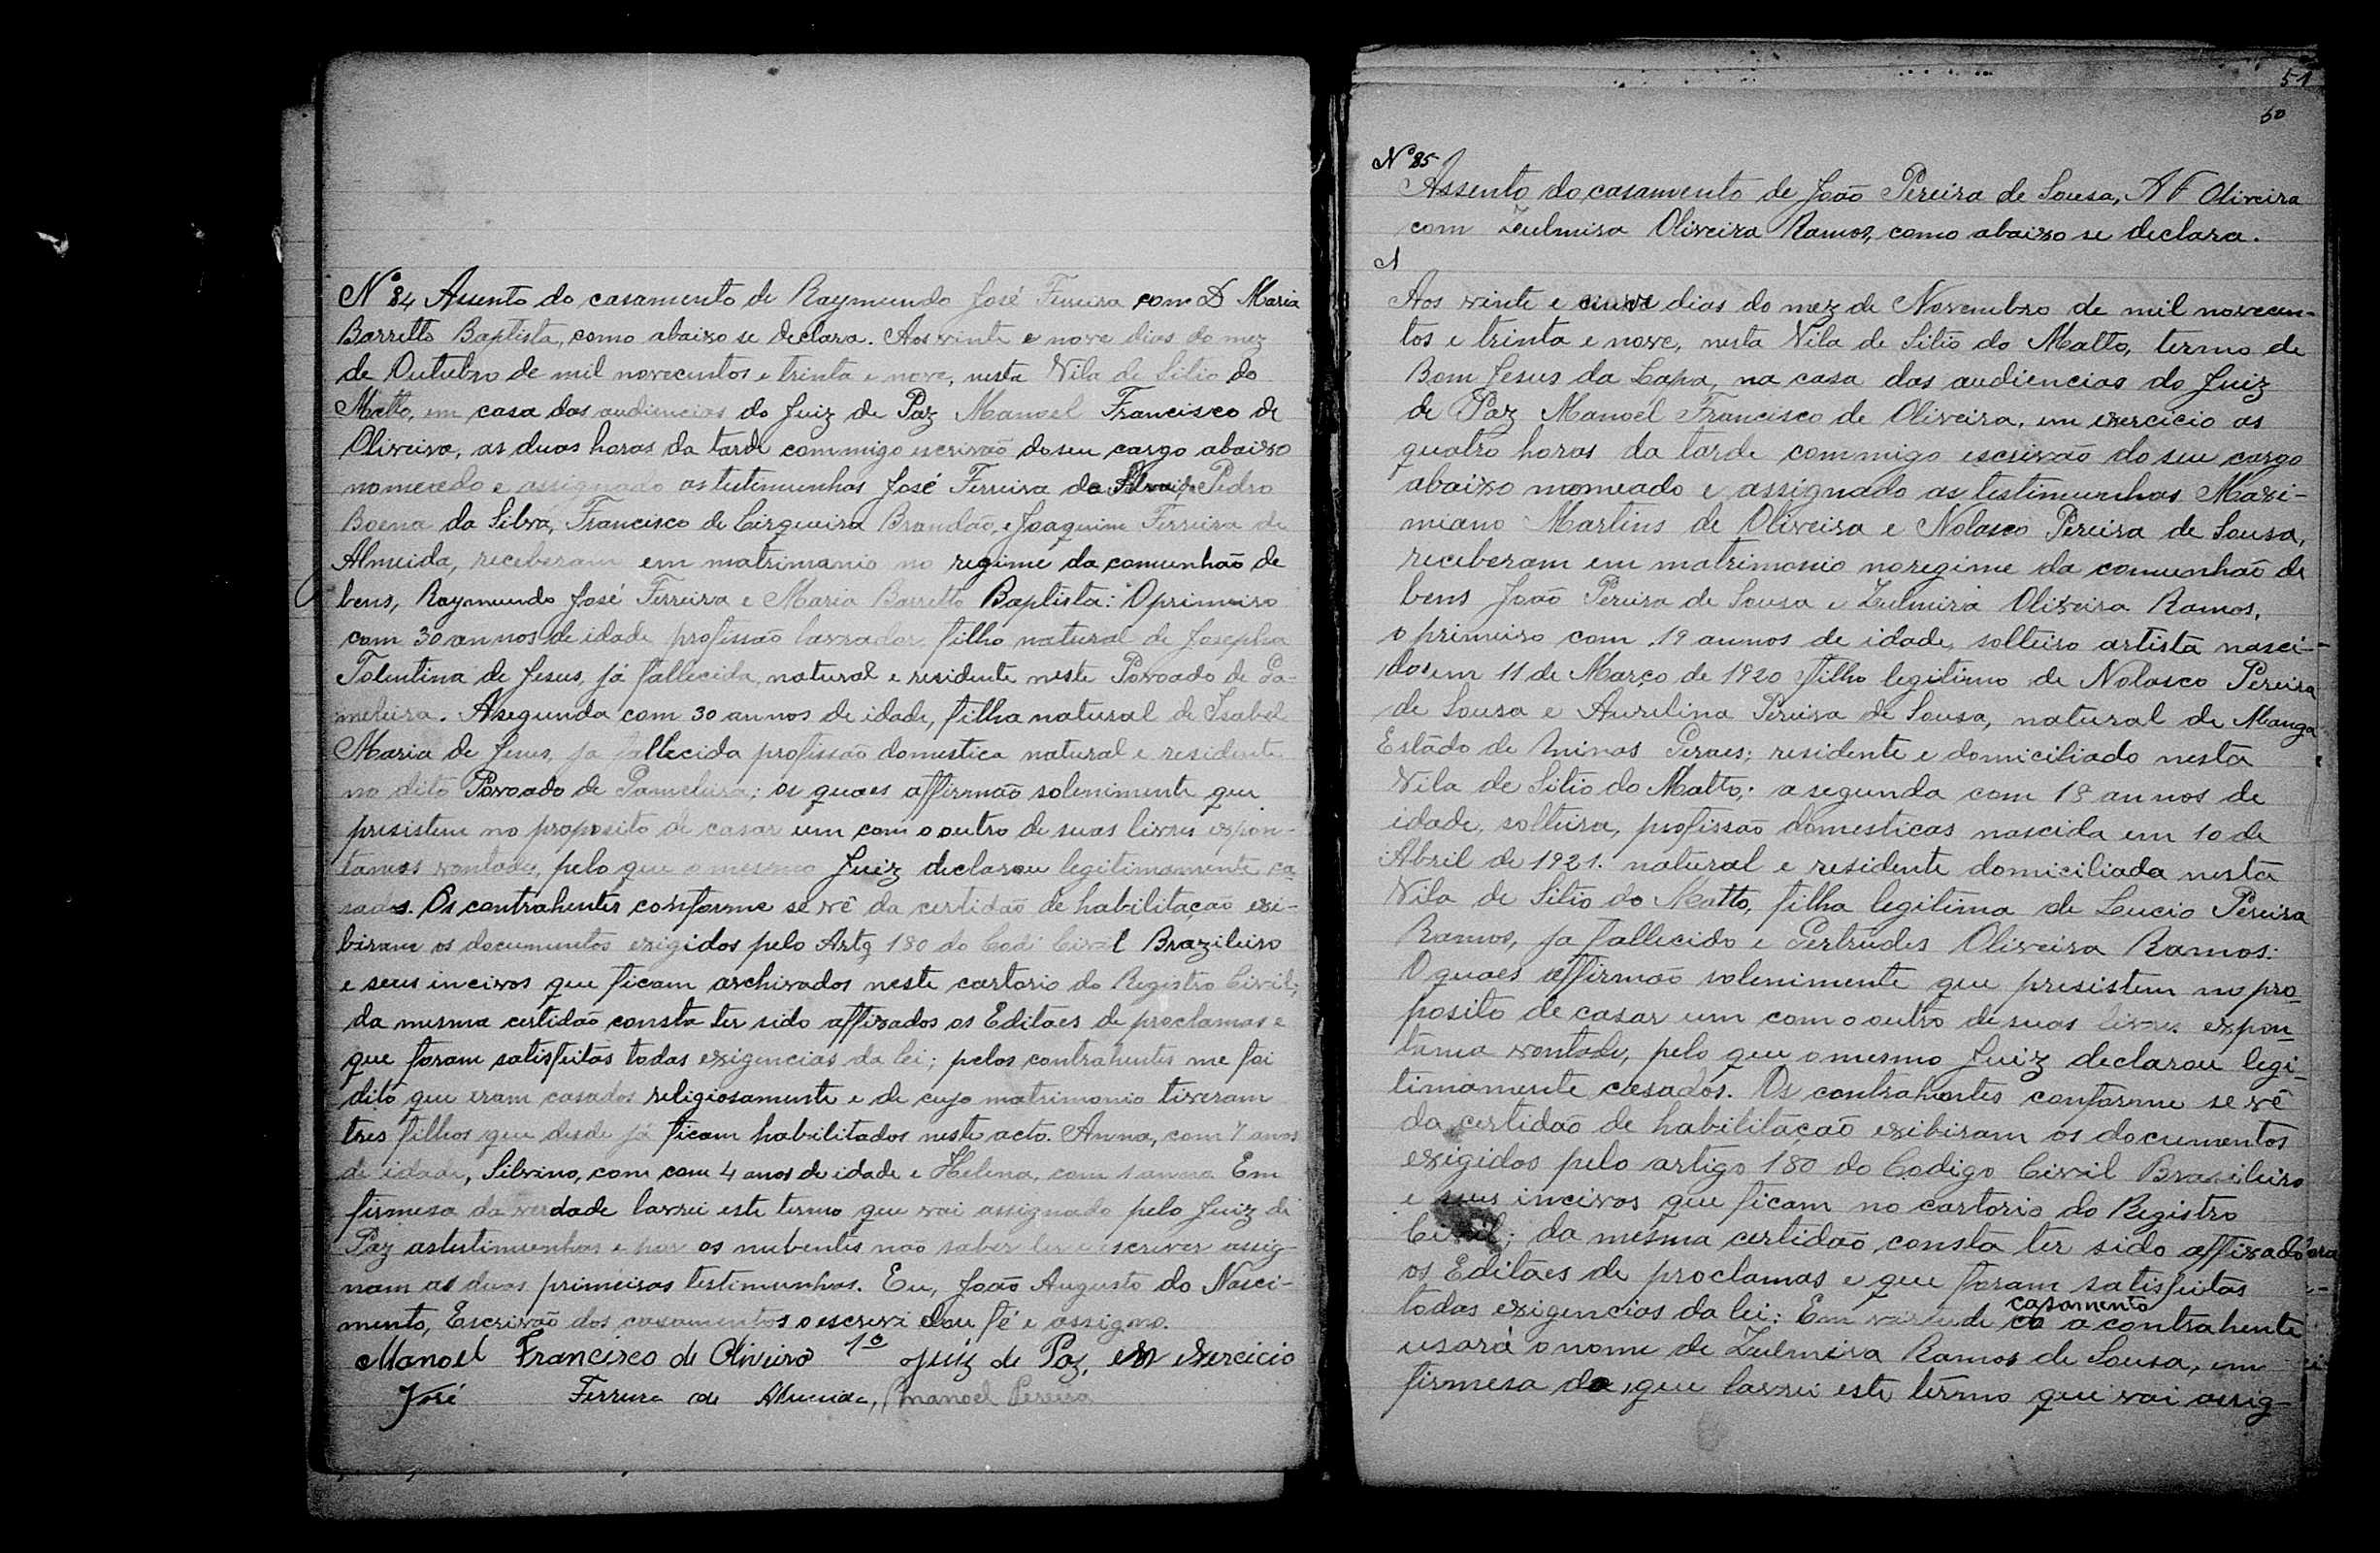 Nº 84 Assento do casamento de Raymundo José Ferreira com D Maria
Barretto Baptista, como abaixo se declara. Aos vinte e nove dias do mez
de Outubro de mil novecentos e trinta e nove, nesta Vila de Sitio do
Matto, em casa das audiencias do Juiz de Paz Manoel Francisco de
Oliveira, as duas horas da tarde commigo escrivão do seu cargo abaixo
nomeado e assignado as testimunhas José Ferreira de Almeida Pedro
Boena da Silva, Francisco de Cirqueira Brandão, e Joaquim Ferreira de
Almeida, receberam em matrimanio no regime da comunhão de
bens, Raymundo José Ferreira e Maria Barretto Baptista: O primeiro
com 30 annos de idade profissão lavrador filho natural de Josepha
Tolentina de Jesus, já fallecida, natural e residente neste Povoado de Ga-
meleira. A segunda com 30 annos de idade, filha natural de Isabel
Maria de Jesus, ja fallecida profissão domestica natural e residente
no dito Povoado de Gameleira; os quaes affirmão solenimente que
presistem no proposito de casar um com o outro de suas livres expon-
tamos vontades, pelo que o mesmo Juiz declarou legitimamente ca-
sados. Os contrahentes conforme se vê da certidão de habilitação exi-
biram os documentos exigidos pelo Artg 180 do Cod: Civil Brazileiro
e seus incivos que ficam archivados neste cartorio do Registro Civil;
da mesma certidão consta ter sido affixados os Editaes de proclamas e
que foram satisfeitas todas exigencias da lei; pelos contrahentes me foi
dito que eram casados religiosamente e de cujo matrimonio tiveram
tres filhos que desde já ficam habilitados neste acto. Anna, com 7 anos
de idade, Silvino, com com 4 anos de idade e Helena, com 1 anno. Em
firmesa da verdade lavrei este termo que vai assignado pelo Juiz de
Paz as testimunhas e por os nubentes não saber ler e escrever assig-
nam as duas primeiras testimunhas. Eu, João Augusto do Nasci-
mento, Escrivão dos casamentos o escrevi dou fé e assigno.
Manoel Francisco de Oliveira 1º Juiz de Paz, em exercicio
José Ferreira de Almeida, Manoel Pereira
51
50
Nº 85
Assento do casamento de João Pereira de Sousa, Oliveira
com Zulmira Oliveira Ramos, como abaixo se declara.
A
Aos vinte e dias do mez de Novembro de mil novecen-
tos e trinta e nove, nesta Vila de Sitio do Matto, termo de
Bom Jesus da Lapa, na casa das audiencias do Juiz
de Paz Manoel Francisco de Oliveira, em exercicio as
quatro horas da tarde commigo escrivão do seu cargo
abaixo nomeado e assignado as testimunhas Maxi-
miano Martins de Oliveira e Nolasco Pereira de Sousa,
receberam em matrimonio no regime da comunhão de
bens João Pereira de Sousa e Zulmira Oliveira Ramos,
o primeiro com 19 annos de idade, solteiro artista nasci-
dos em 11 de Março de 1920 filho legitimo de Nolasco Pereira
de Sousa e Aurelina Pereira de Sousa, natural de Manga
Estado de Minas Geraes; residente e domiciliado nesta
Vila de Sitio do Matto; a segunda com 18 annos de
idade, solteira, profissão domesticas nascida em 10 de
Abril de 1921. natural e residente domiciliada nesta
Vila de Sitio do Matto, filha legitima de Lucio Pereira
Ramos, ja fallecido e Gertrudes Oliveira Ramos:
O quaes affirmão solenimente que presistem no pro-
posito de casar um com o outro de suas livres expon-
tania vontade, pelo que o mesmo Juiz declarou legi-
timamente casados. Os contrahentes conforme se vê
da certidão de habilitação exibiram os documentos
exigidos pelo artigo 180 do Codigo Civil Brasileiro
e seus incivos que ficam no cartorio do Registro
Civil; da mesma certidão consta ter sido affixado
os Editaes de proclamas e que foram satisfeitas
todas exigencias da lei: Em virtude casamento a contrahente
usará o nome de Zulmira Ramos de Sousa, em
firmesa do que lavrei este termo que vai assig-